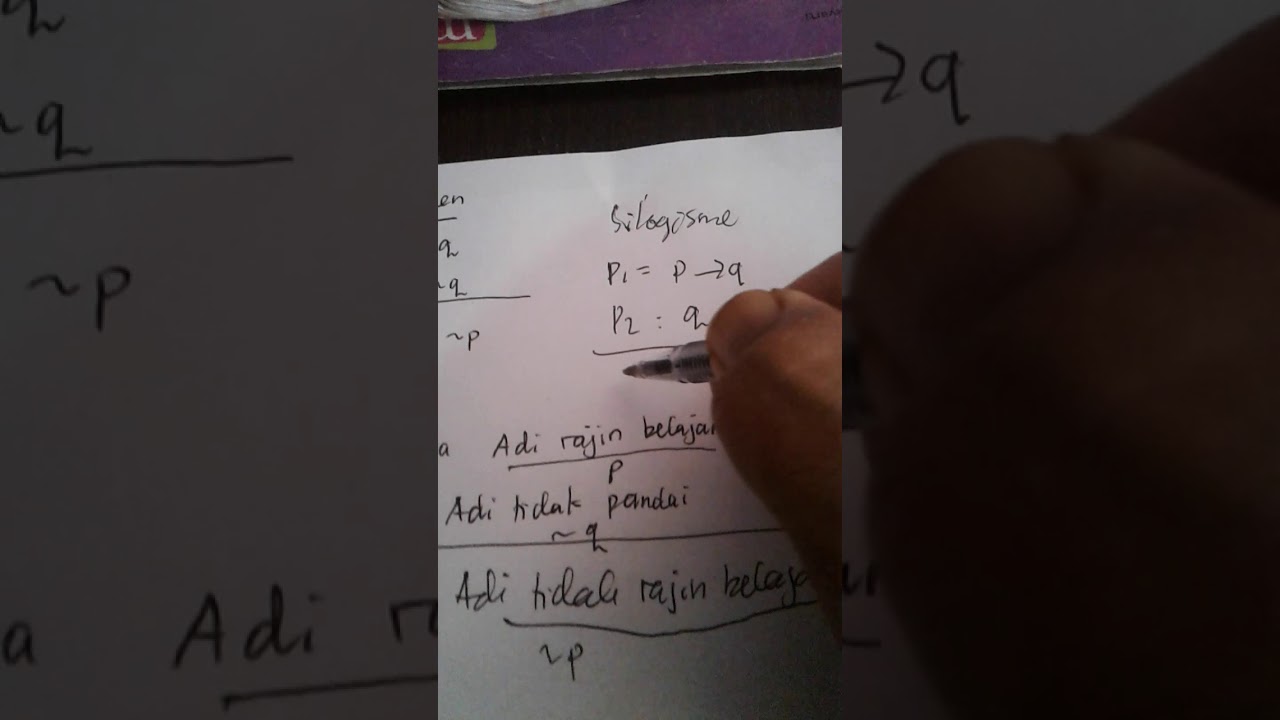 en
q
~q
~p
Silogisme
P1 = p → q
P2 : q
a Adi rajin belajar
p
Adi tidak pandai
~q
Adi tidak rajin belaja
~p